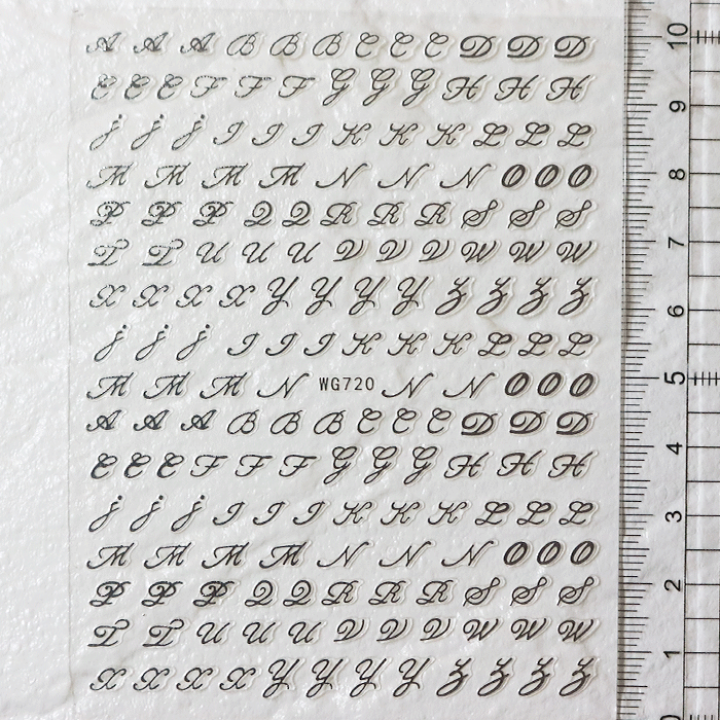 A A A B B B C C C D D D
E E E F F F G G G H H H
j j j I I I K K K L L L
M M M M N N N O O O
P P P Q Q R R R S S S
T T U U U V V V W W W
X X X X Y Y Y Y Z Z Z Z
j j j I I I K K K L L L
M M M N WG720 N N O O O
A A A B B B C C C D D D
E E E F F F G G G H H H
j j j I I I K K K L L L
M M M M N N N O O O
P P P Q Q R R R S S S
T T U U U V V V W W W
X X X X Y Y Y Y Z Z Z Z
10
9
8
7
6
5
4
3
2
1
0